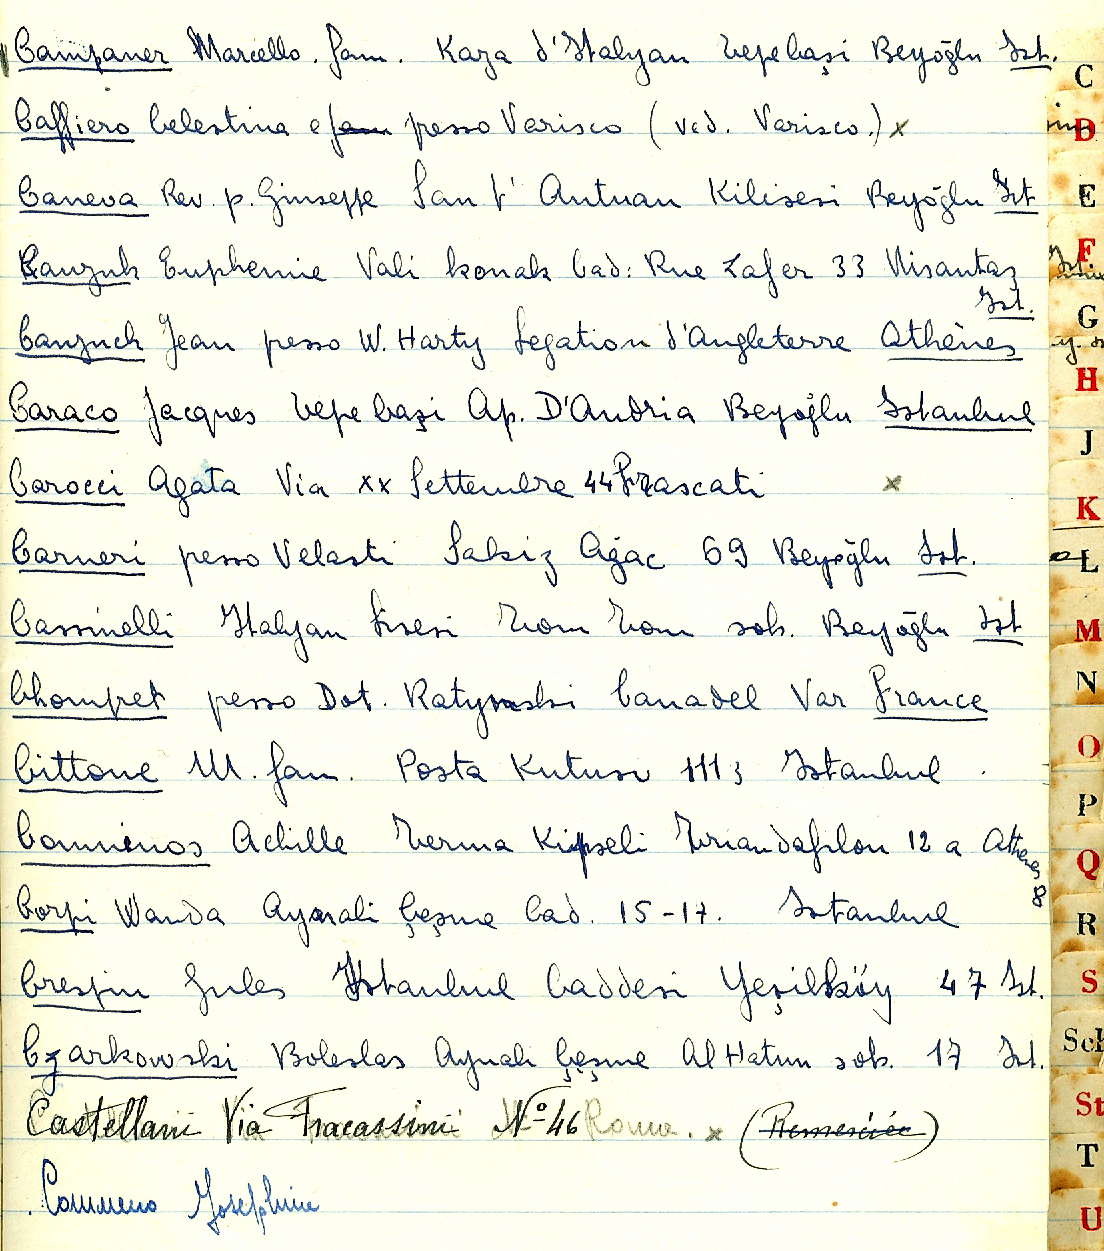 Campaner Marcello. fam. Kaza d'Italyan Tepebaşi Beyoğlu Ist.
Caffiero Celestina e fam presso Varisco (ved. Varisco.) x
Caneva Rev. p. Giuseppe San t' Antuan Kilisesi Beyoğlu Ist
Canzuk Euphemie Vali konak Cad: Rue Zafer 33 Nisantaz
Ist.
Canzuch Jean presso W. Harty Legation d'Angleterre Athènes
Caraco Jacques Tepebaşi Ap. D'Andria Beyoğlu Istanbul
Carocci Agata Via XX Settembre 44 Frascati x
Carneri presso Velasti Sakiz Ağac 69 Beyoğlu Ist.
Cassinelli Italyan Lisesi Tom Tom sok. Beyoğlu Ist
Chompret presso Dot. Ratynski Canadel Var France
Cittone M. fam. Posta Kutusu 1113 Istanbul
Comninos Achille Terma Kipseli Triandafilon 12 a Athenes 8
Corpi Wanda Aynali Çeşme Cad. 15-17. Istanbul
Crespin Jules Istanbul Caddesi Yeşilköy 47 Ist.
Czarkowski Boleslas Aynalı Çeşme Al Hatun sok. 17 Ist.
Castellani Via Fracassini Nº 46 Roma. x (Remerciée)
Commeno Josephine
C
D
E
F
G
H
J
K
L
M
N
O
P
Q
R
S
Sch
St
T
U